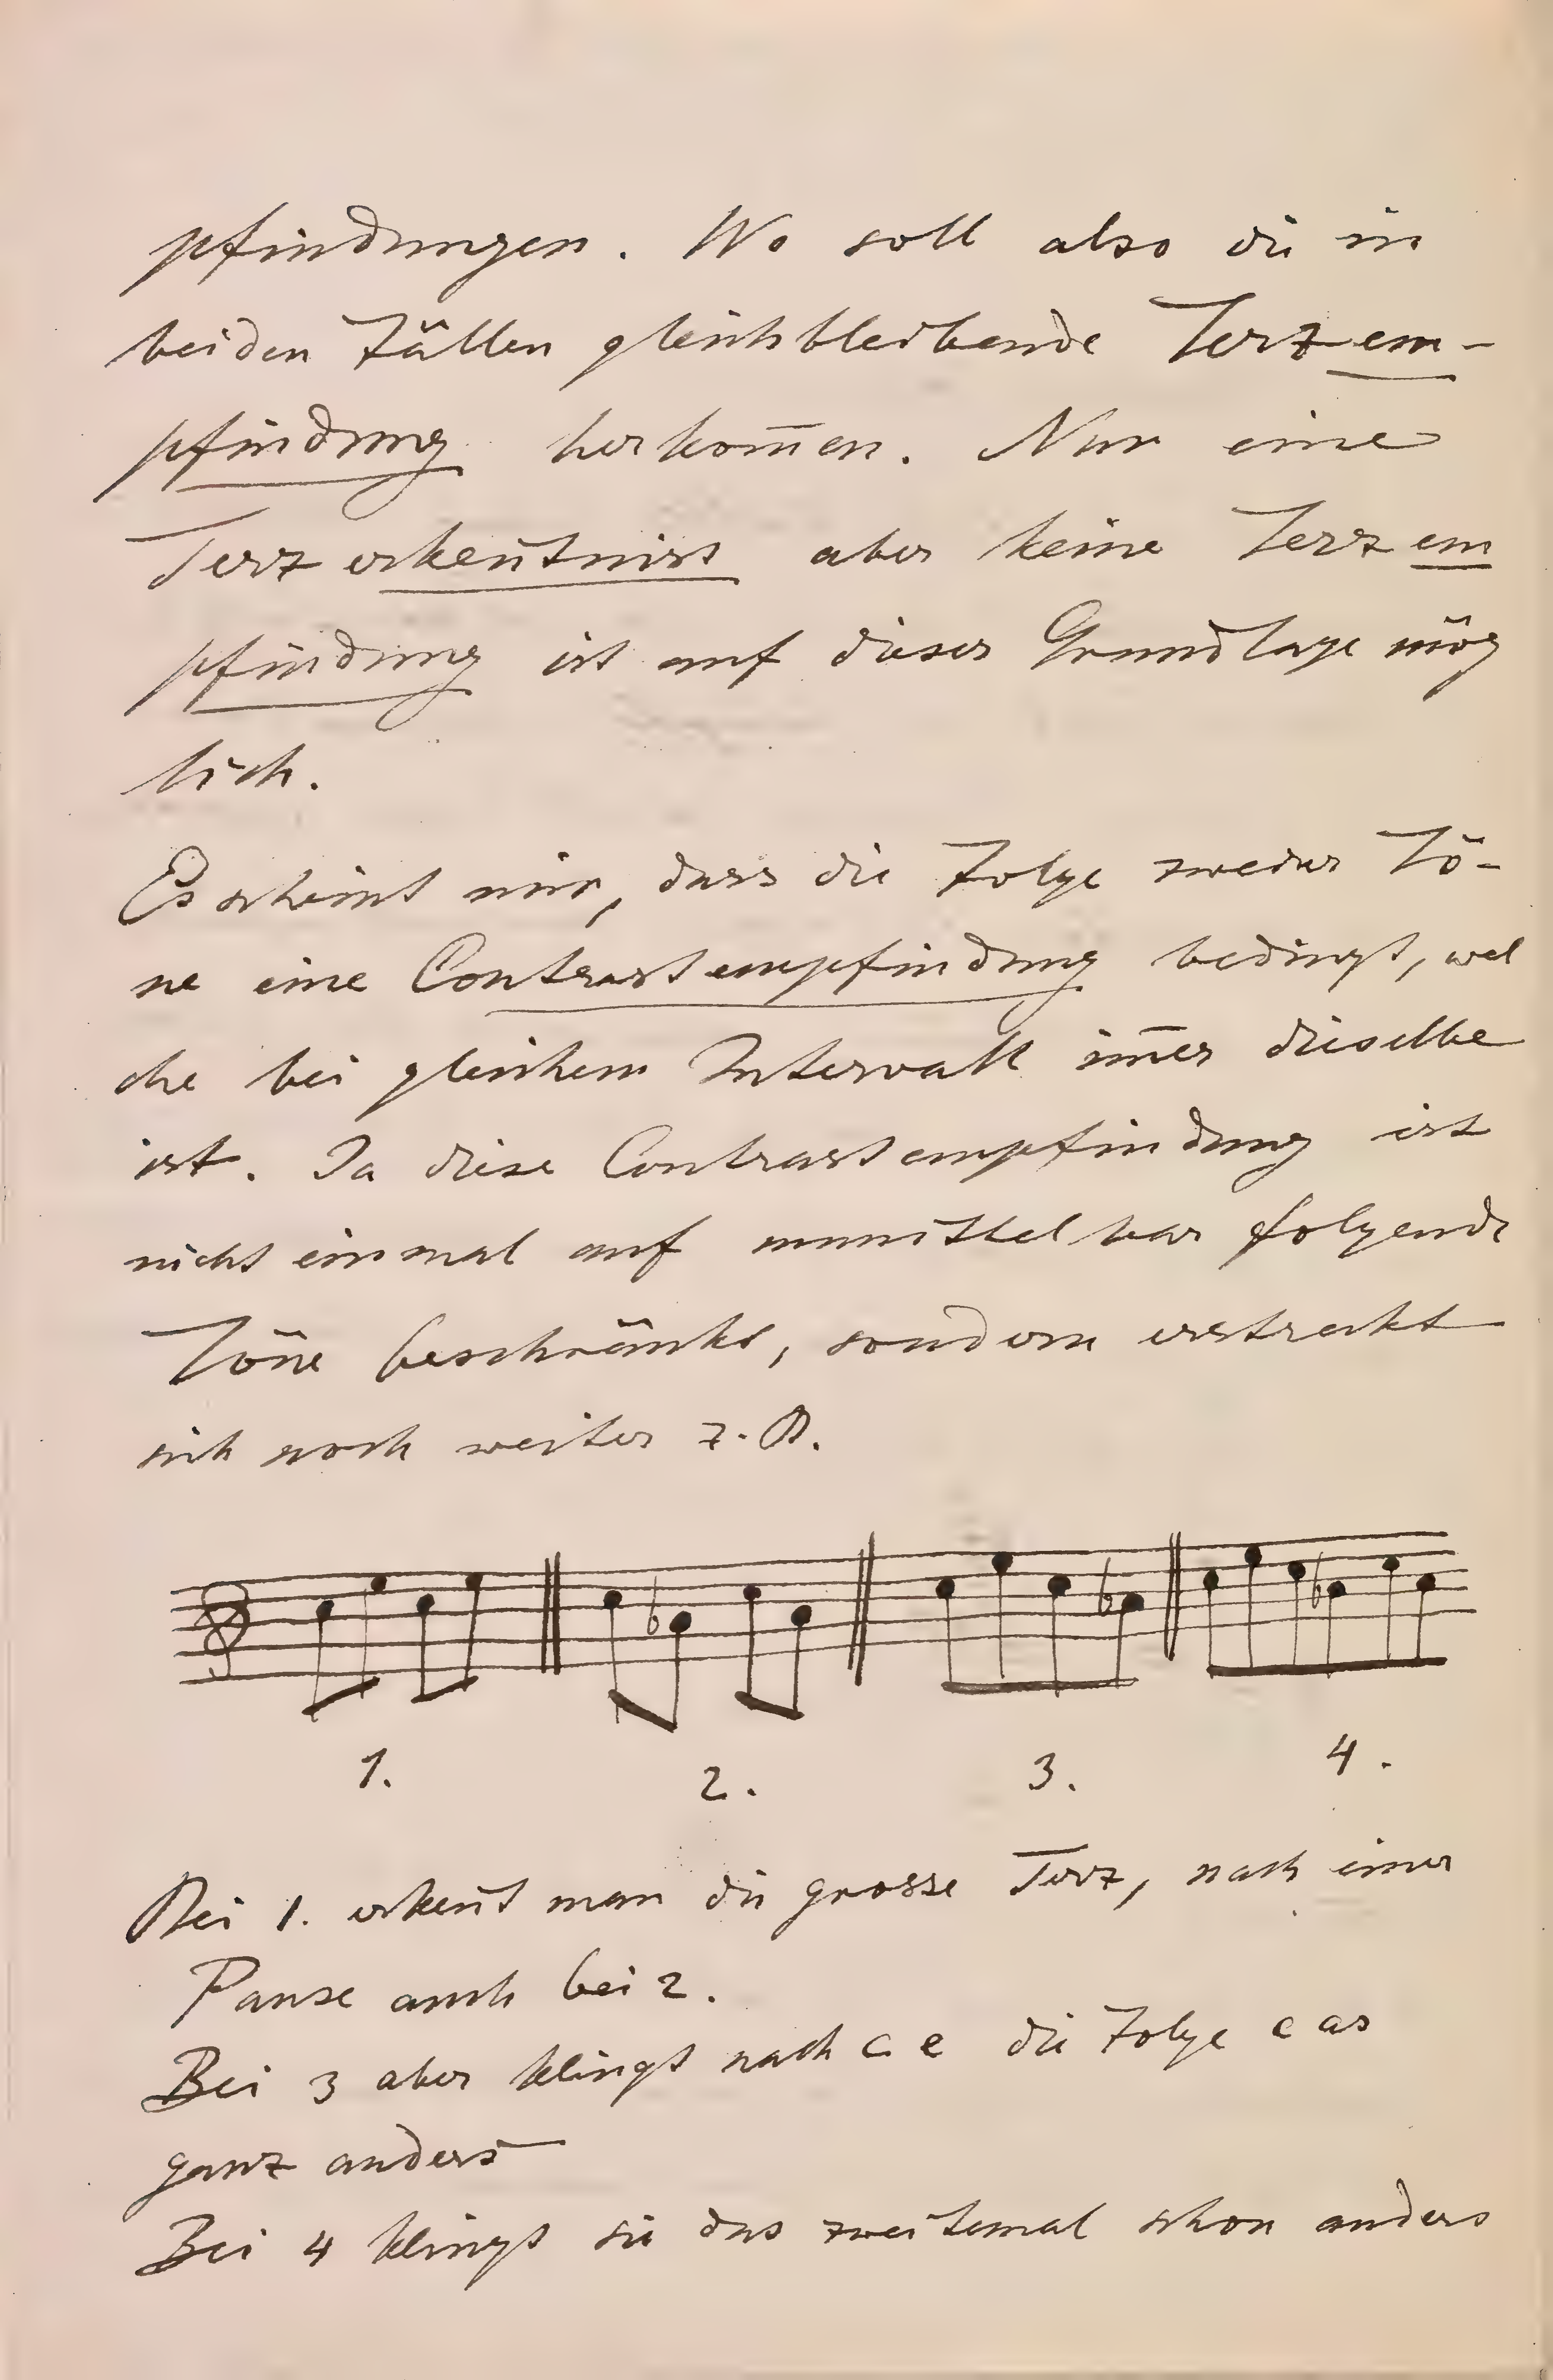 pfindungen. Wo soll also die in
beiden Fällen gleichbleibende Terzem-
pfindung herkom̄en. Nur eine
Terzerken̄tniss aber keine Terzem
pfindung ist auf dieser Grundlage mög
lich.
Es scheint mir, dass die Folge zweier Tö-
ne eine Contrastempfindung bedingt, wel
che bei gleichem Intervall im̄er dieselbe
ist. Ja diese Contrastempfindung ist
nicht einmal auf unmittelbar folgende
Töne beschränkt, sondern erstreckt
sich noch weiter z. B.
1. 2. 3. 4.
Bei 1. erken̄t man die grosse Terz, nach einer
Pause auch bei 2.
Bei 3 aber klingt nach c e die Folge c as
ganz anders
Bei 4 klingt sie das zweitemal schon anders